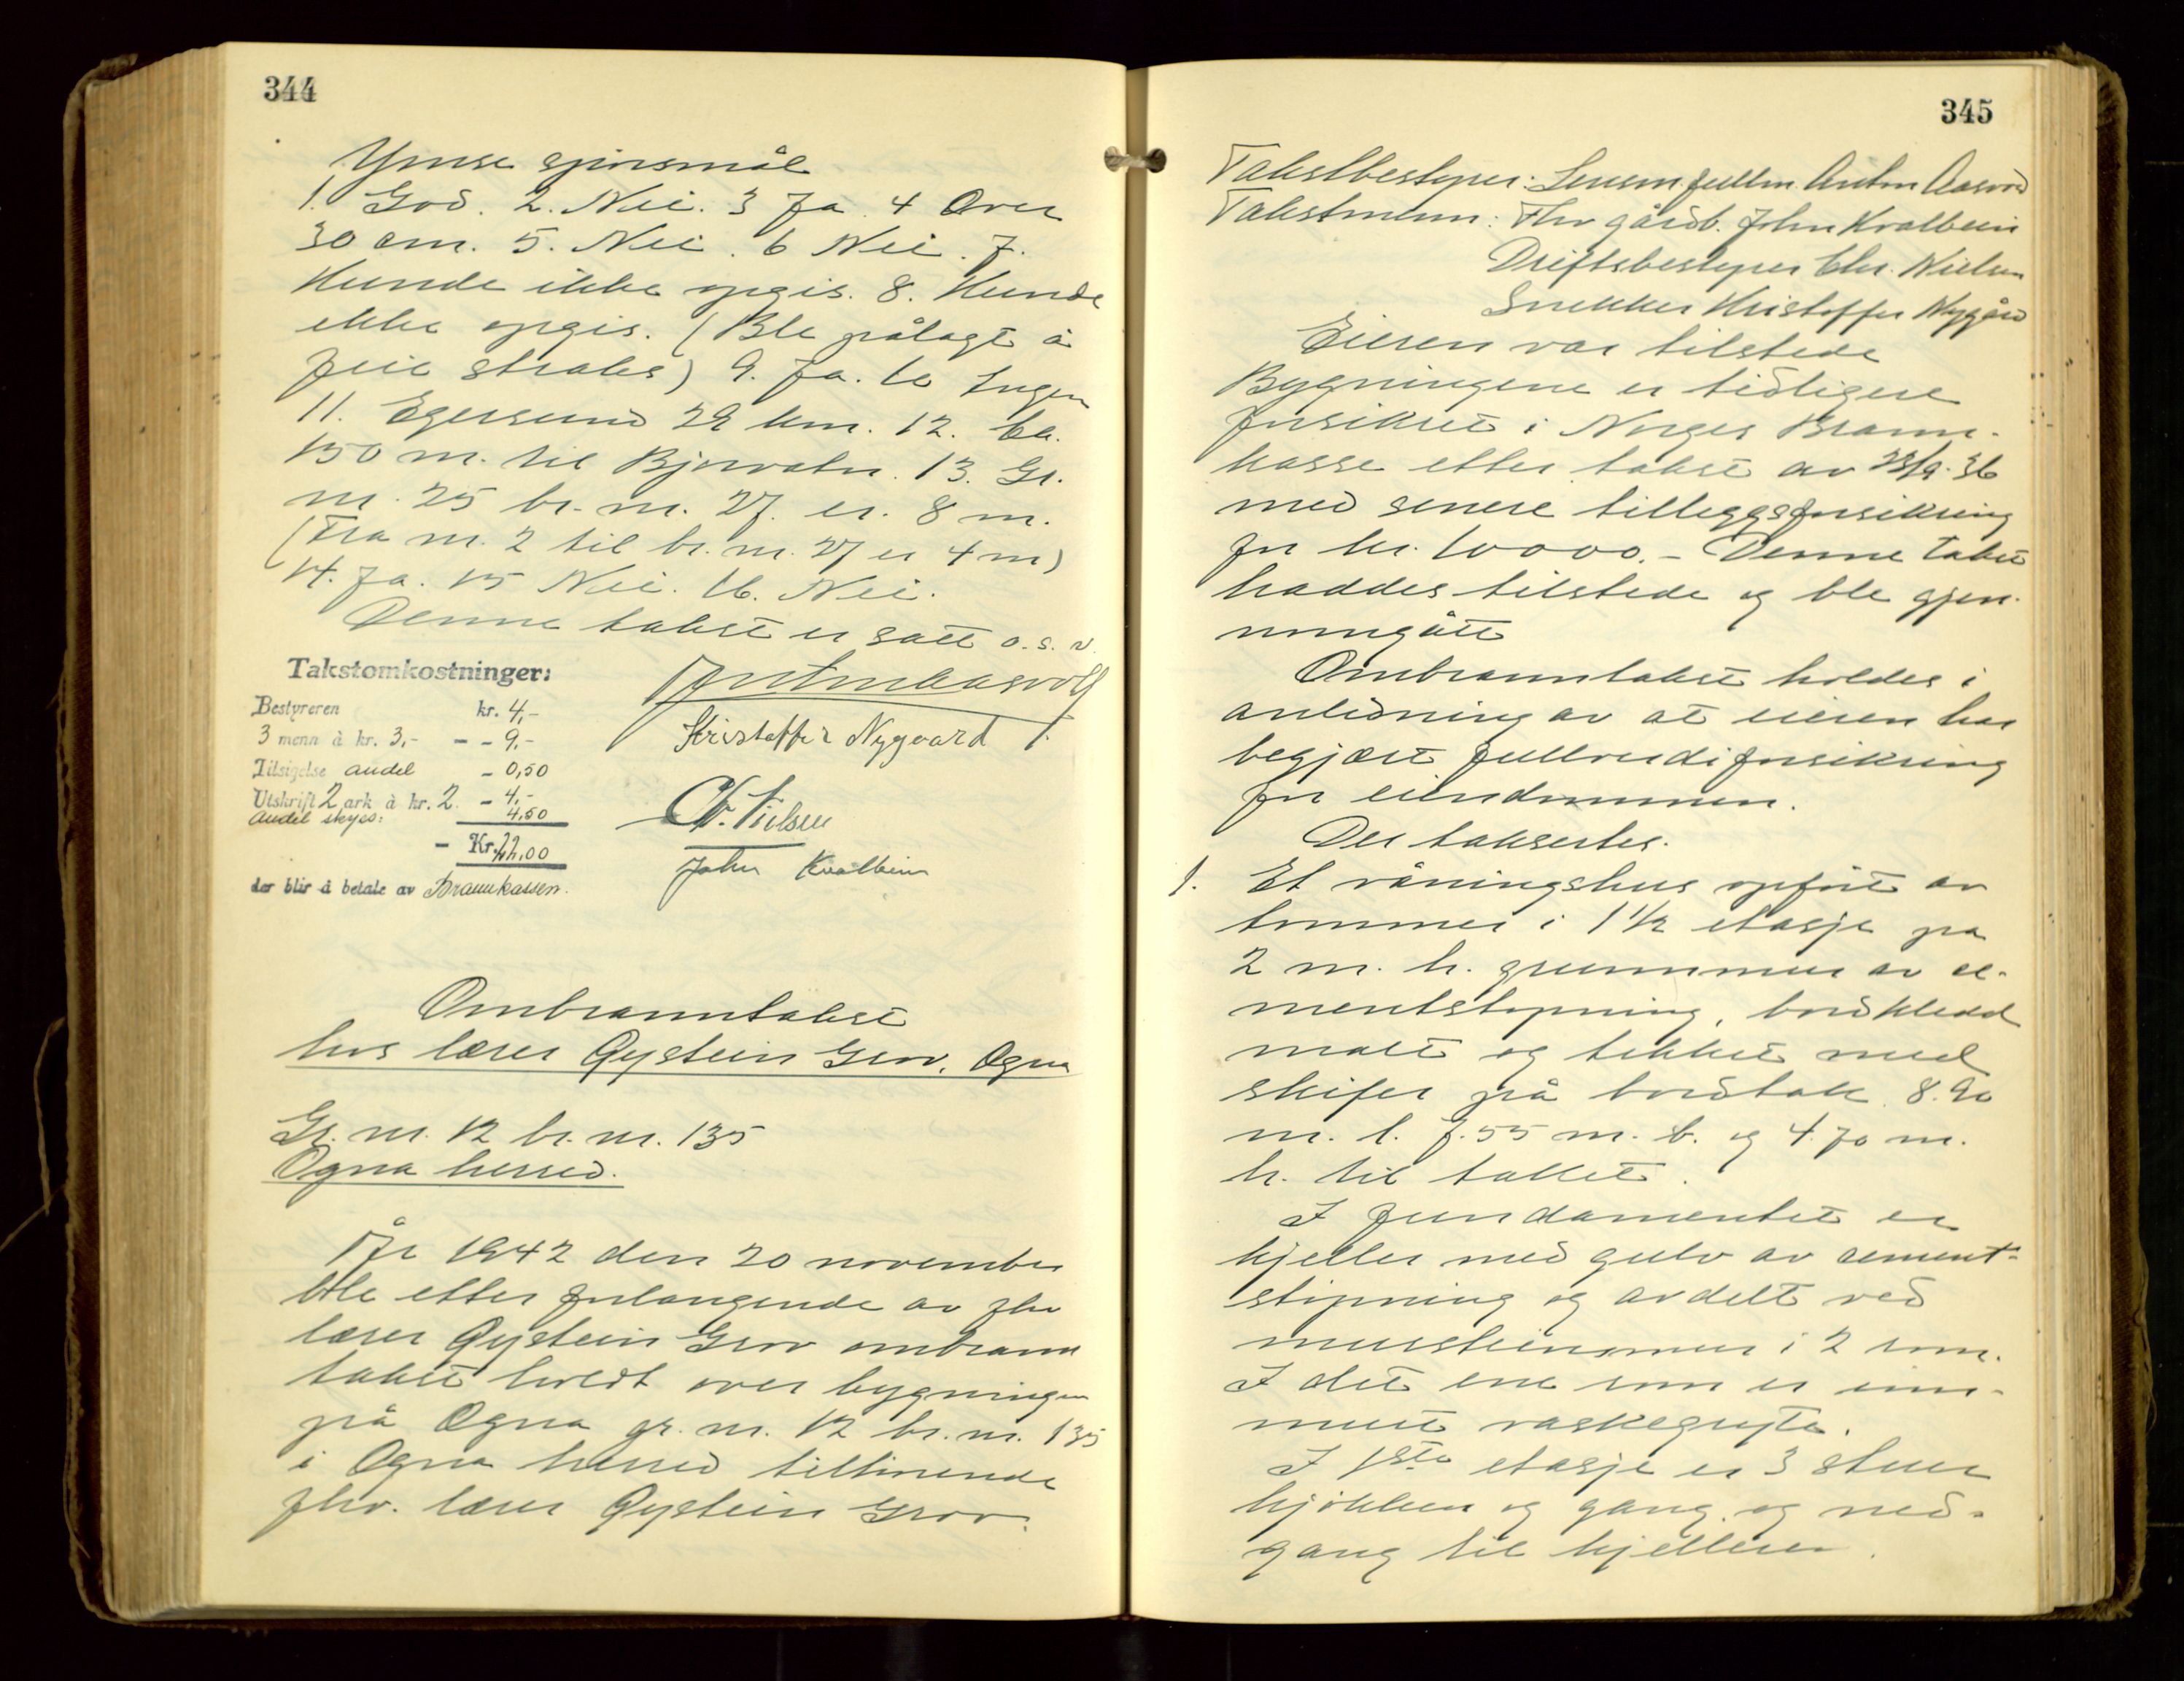 344
Ymse spørsmål
1. God. 2. Nei. 3 Ja. 4 Over
30 cm. 5. Nei. 6 Nei. 7.
Kunde ikke opgis. 8. Kunde
ikke opgis. (Ble pålagt å
feie straks) 9. Ja. 10 Ingen
11. Egersund 29 km. 12. Ca.
150 m. til Bjorvatn. 13. Gr.
nr. 25 br. nr. 27. er. 8 m.
(Fra nr. 2 til br. nr. 27 er 4 m)
14. Ja. 15 Nei. 16. Nei.
Denne takst er satt o. s. v.
Takstomkostninger:
Bestyreren kr. 4,-
3 menn à kr. 3,- - - 9,-
Tilsigelse andel - 0,50
Utskrift 2 ark à kr. 2 - 4,-
Andel skyss: 4,50
- Kr. 22,00
der blir å betale av Brannkassen.
Anton Aasvold
Kristoffer Nygaard
Chr. Nielsen
John Kvalbein
Ombranntakst
hos lærer Øystein Grov, Ogna
Gr. nr. 12 br. nr. 135
Ogna herred.
År 1942 den 20 november
ble etter forlangende av fhv
lærer Øystein Grov ombrann
takst holdt over bygningen
på Ogna gr. nr. 12 br. nr. 135
i Ogna herred tilhørende
fhv. lærer Øystein Grov.
345
Takstbestyrer: Lensm. fullm Anton Aasvold
Takstmenn: Fhv gårdb. John Kvalbein
Driftsbestyrer Chr. Nielsen
Snekker Kristoffer Nygård
Eieren var tilstede
Bygningene er tidligere
forsikret i Norges Brann-
kasse etter takst av 23/9-36
med senere tilleggsforsikring
for kr. 10000.- Denne takst
haddes tilstede og ble gjen-
nomgått
Ombranntakst holdes i
anledning av at eieren har
begjært fullverdiforsikring
for eiendommen.
Der taksertes.
1. Et våningshus opført av
tømmer i 1 1/2 etasje på
2 m. h. grunnmur av ce-
mentstøpning, bordkledd
malt og tekket med
skifer på bordtak. 8.90
m. l. 7.55 m. b. og 4.70 m.
h. til taket.
I fundamentet er
kjeller med gulv av cement-
støpning og avdelt ved
mursteinsmur i 2 rom.
I det ene rom er inn-
muret vaskegryte.
I 1ste etasje er 3 stuer
kjøkken og gang og ned-
gang til kjelleren.